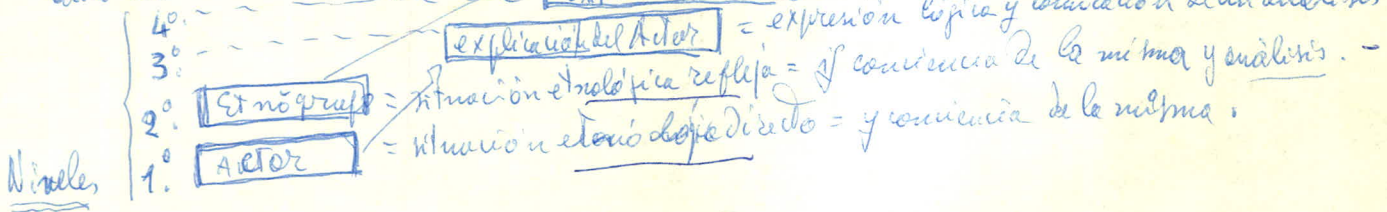 4º.
3º. explicación del Actor = expresión lógica y
2º. Etnógrafo = situación etnológica refleja = y conciencia de la misma y análisis. -
1º. Actor = situación directo = y conciencia de la misma.
Niveles